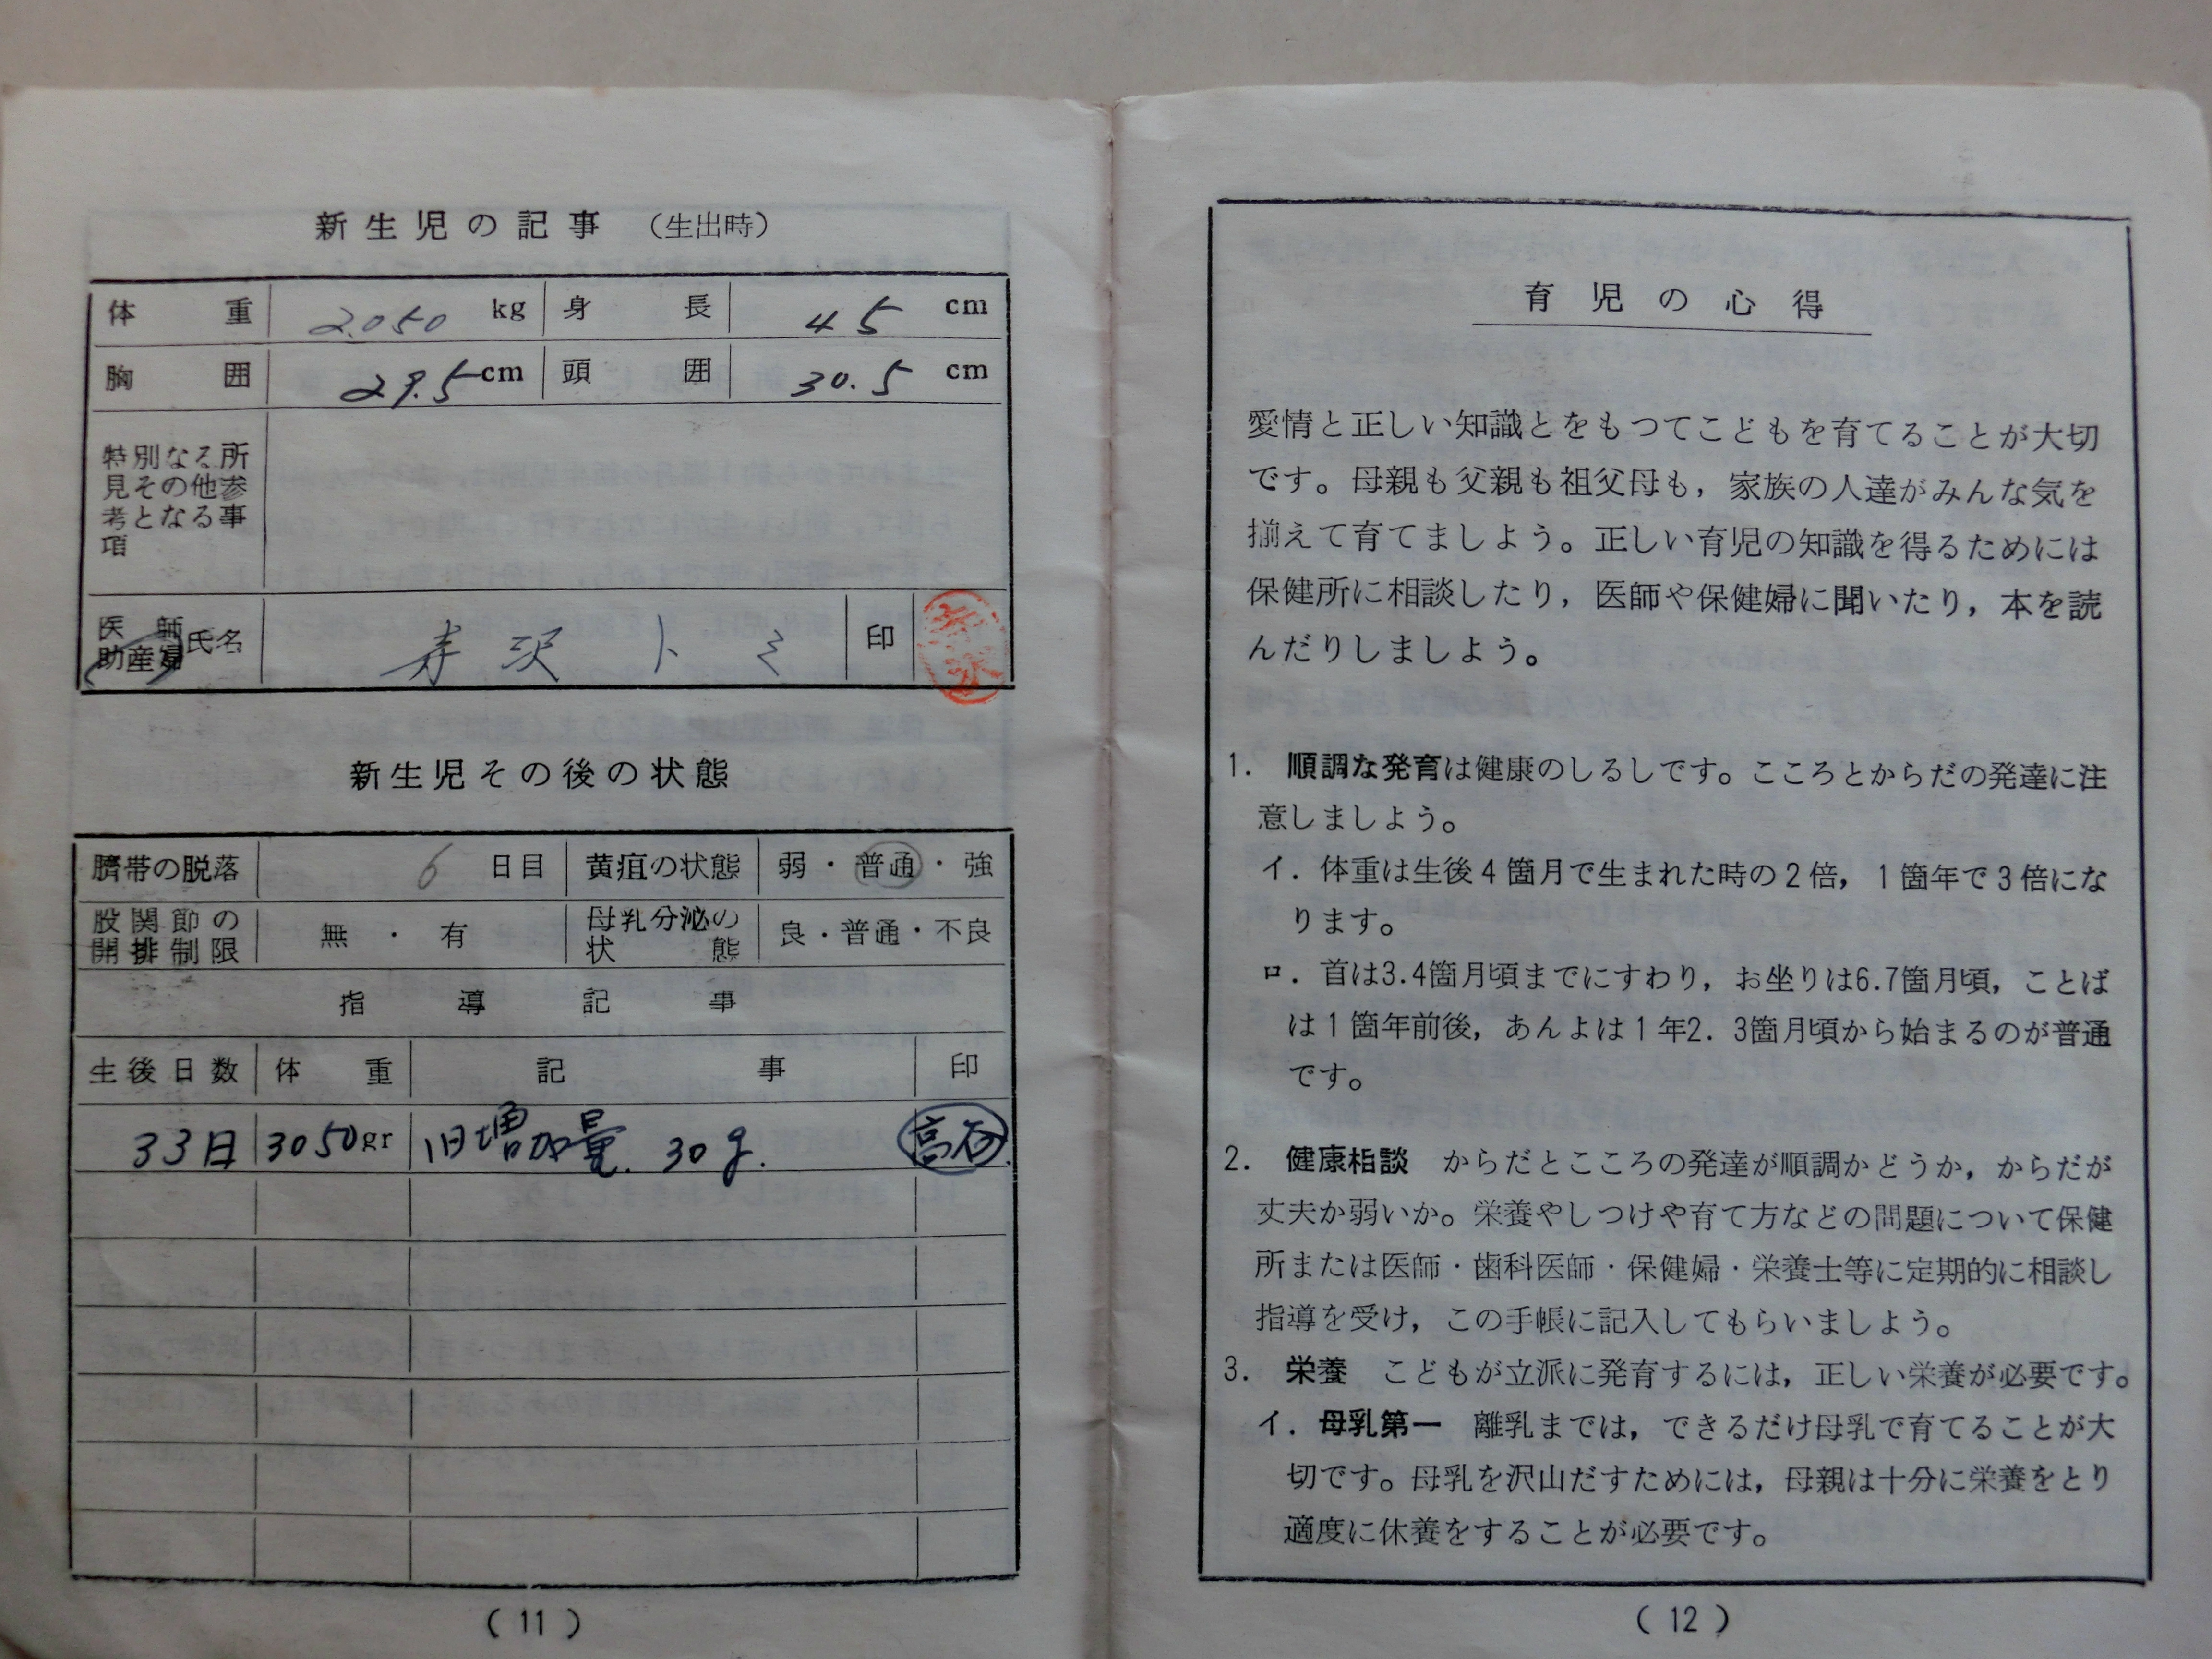 新生児の記事 （生出時）
体重 2.050 kg 身長 45 cm
胸囲 29.5 cm 頭囲 30.5 cm
特別なる所
見その他参
考となる事
項
医師
助産婦 氏名 沢トミ 印
新生児その後の状態
臍帯の脱落 6 日目 黄疸の状態 弱・普通・強
股関節の
開排制限 無・有 母乳分泌の
状態 良・普通・不良
指導記事
生後日数 体重 記事 印
33日 3050gr 旧増加量. 30g. 高石
(11)
育児の心得
愛情と正しい知識とをもつてこどもを育てることが大切
です。母親も父親も祖父母も，家族の人達がみんな気を
揃えて育てましよう。正しい育児の知識を得るためには
保健所に相談したり，医師や保健婦に聞いたり，本を読
んだりしましよう。
1. 順調な発育は健康のしるしです。こころとからだの発達に注
意しましよう。
イ．体重は生後4箇月で生まれた時の2倍，1箇年で3倍にな
ります。
ロ．首は3.4箇月頃までにすわり，お坐りは6.7箇月頃，ことば
は1箇年前後，あんよは1年2．3箇月頃から始まるのが普通
です。
2. 健康相談 からだとこころの発達が順調かどうか，からだが
丈夫か弱いか。栄養やしつけや育て方などの問題について保健
所または医師・歯科医師・保健婦・栄養士等に定期的に相談し
指導を受け，この手帳に記入してもらいましよう。
3. 栄養 こどもが立派に発育するには，正しい栄養が必要です。
イ．母乳第一 離乳までは，できるだけ母乳で育てることが大
切です。母乳を沢山だすためには，母親は十分に栄養をとり
適度に休養をすることが必要です。
(12)